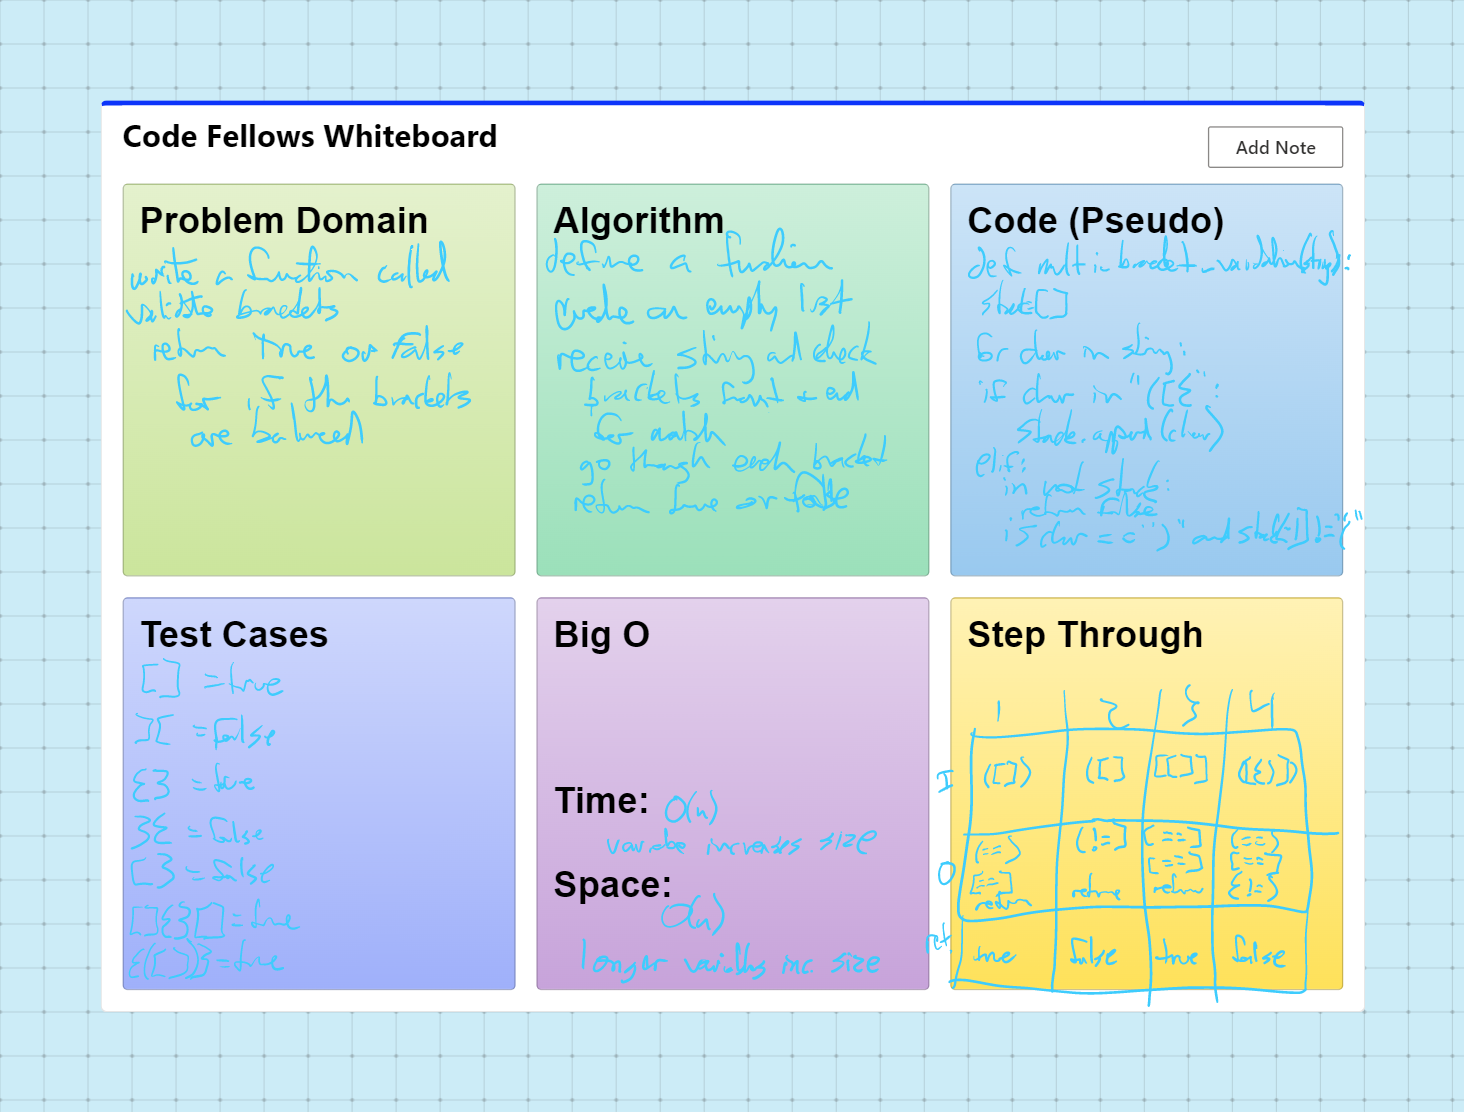 Code Fellows Whiteboard
Add Note
Problem Domain
write a function called
validate brackets
return True or False
for if the brackets
are balanced
Algorithm
define a function
create an empty list
receive string and check
brackets front + end
for match
go through each bracket
return true or false
Code (Pseudo)
def multi_bracket_validation(string):
stack[]
for char in string:
if char in "([{":
stack.append(char)
elif:
in not stack:
return false
if char == ")" and stack[-1] != "("
Test Cases
[] = true
][ = false
{} = true
}{ = false
[} = false
[]{}[] = true
{([])} = true
Big O
Time: O(n)
variable increases size
Space:
O(n)
longer variables inc. size
Step Through
1 2 3 4
I ([]) ([] [[]] ([{)])
O (==) (!=] [==] (==)
[==] [==] [==]
return return return {!=)
ret true false true false